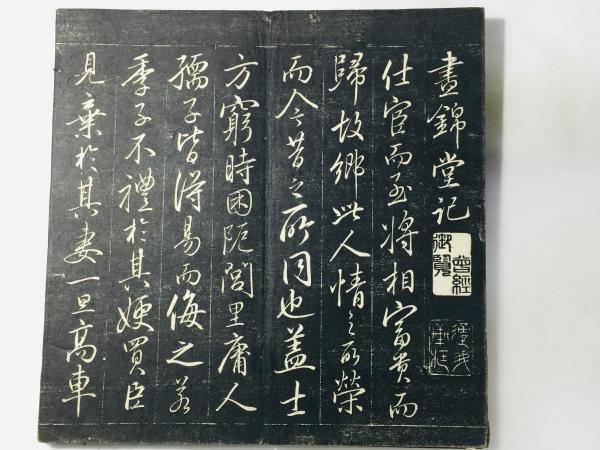 晝錦堂记
曾經
御覽
仕宦而至将相富贵而
歸故鄉此人情之所榮
而今昔之所同也盖士
方窮時困阨閭里庸人
孺子皆得易而侮之若
季子不禮於其嫂買臣
見棄於其妻一旦高車